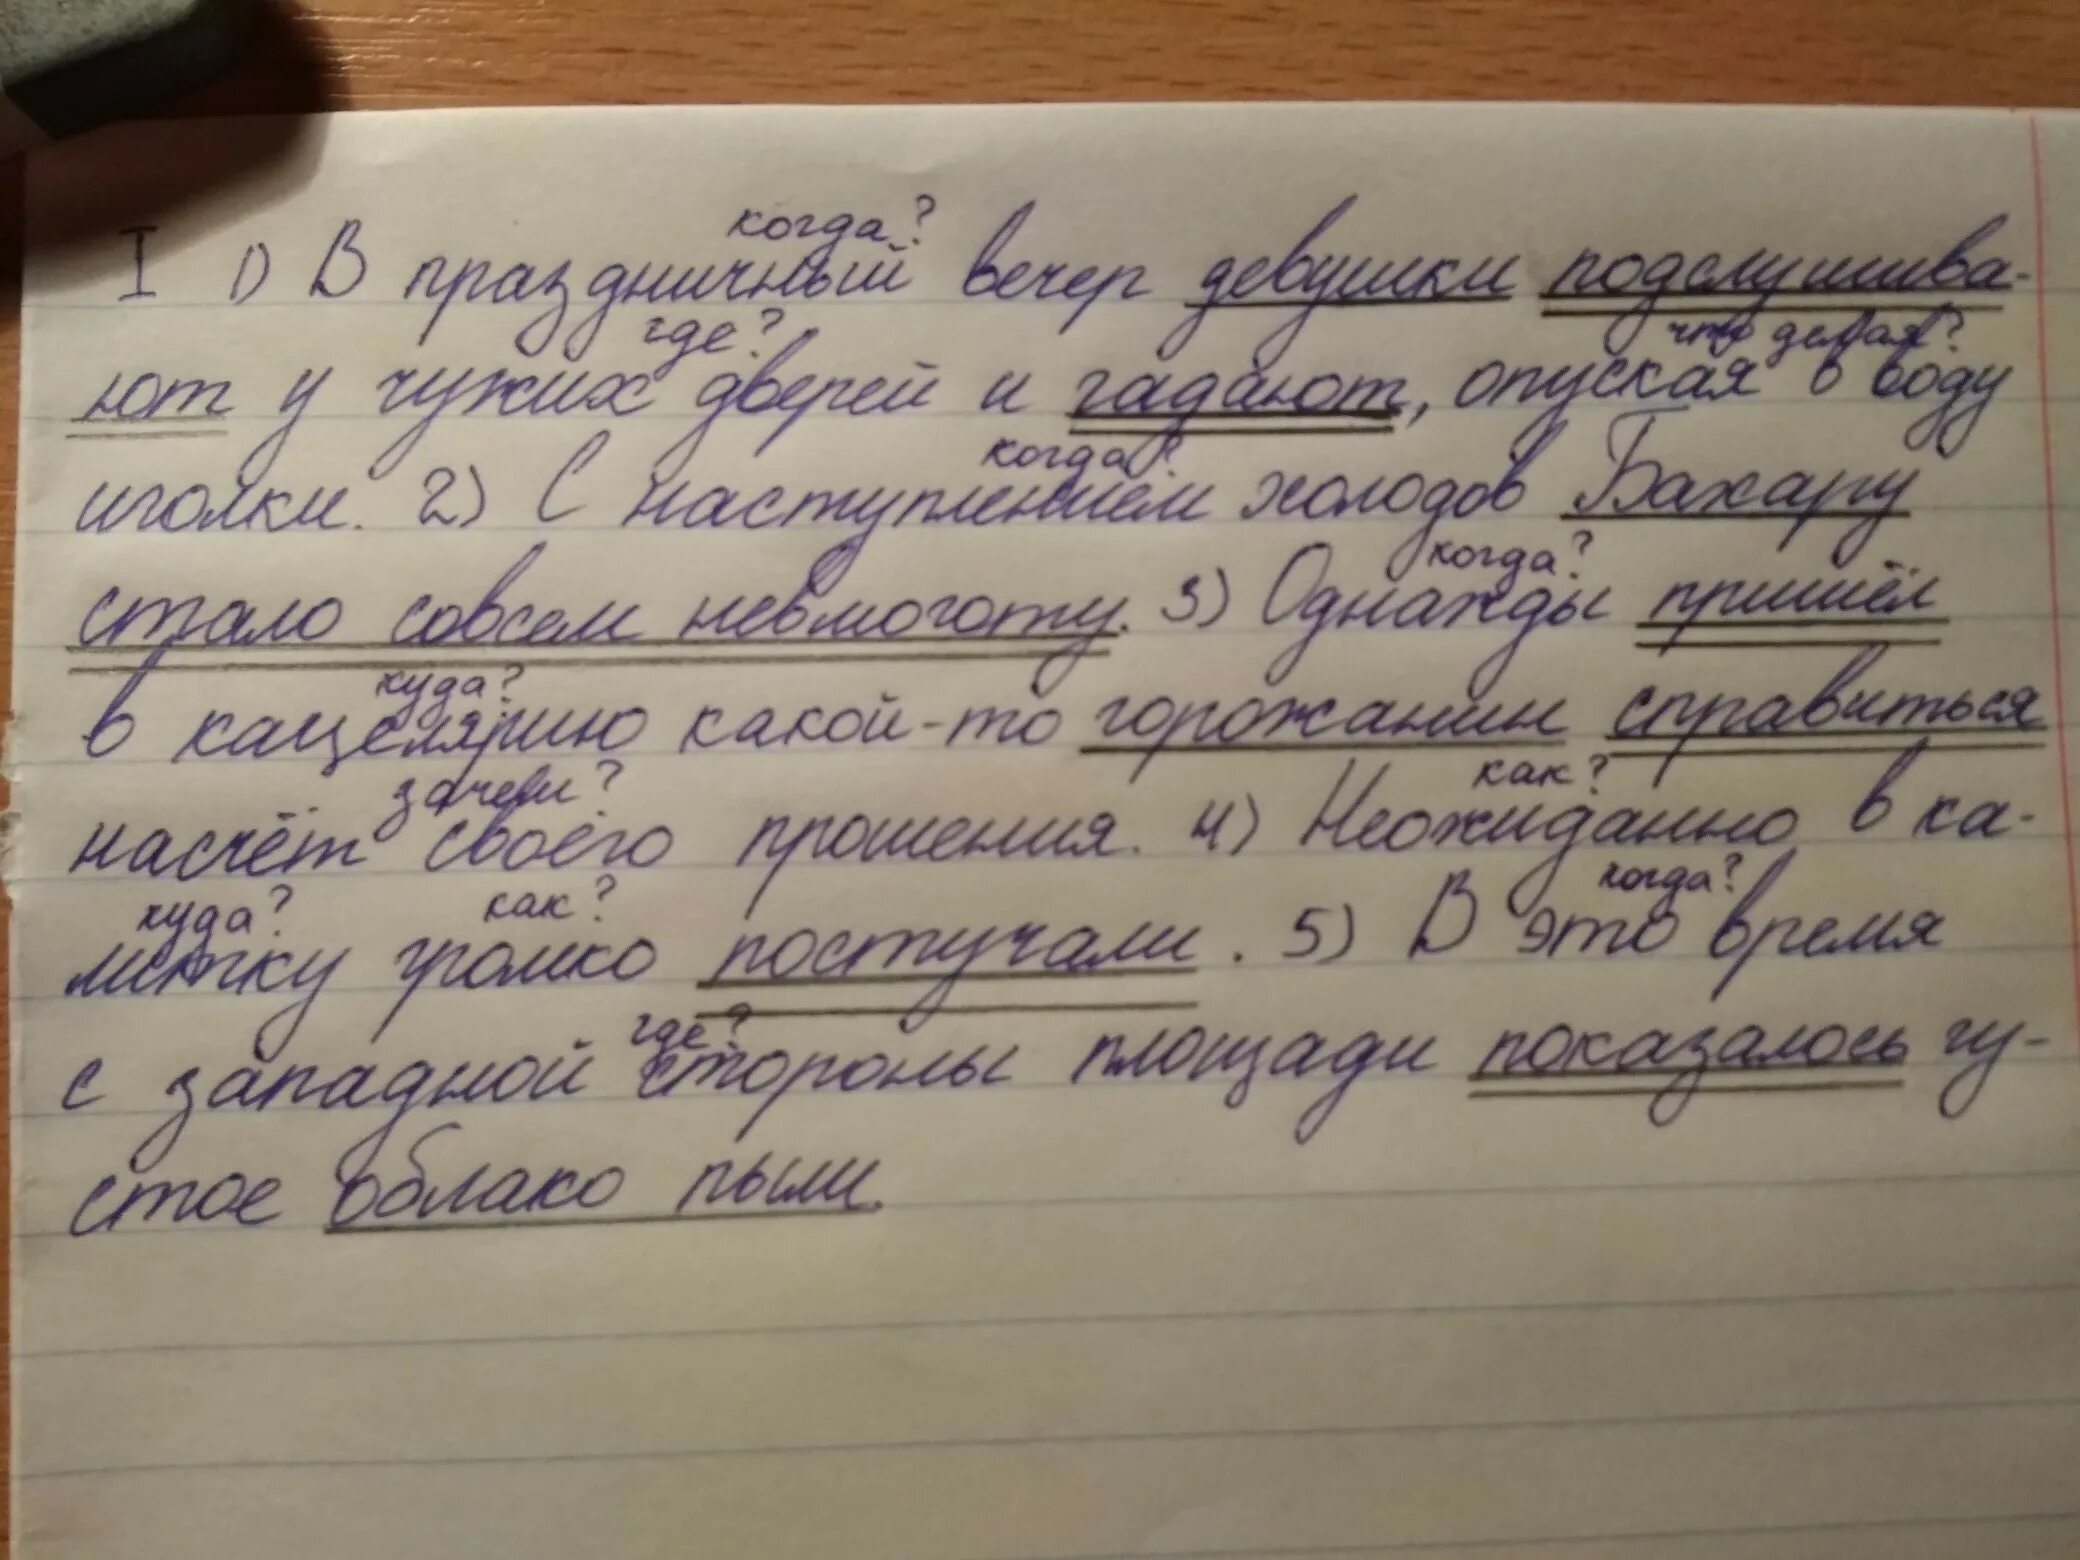 когда?
I 1) В праздничный вечер девушки подслушива-
где? что делая?
ют у чужих дверей и гадают, опуская в воду
когда?
иголки. 2) С наступлением холодов Бахару
когда?
стало совсем невмоготу. 3) Однажды пришёл
куда?
в кацелярию какой-то горожанин справиться
зачем? как?
насчёт своего прошения. 4) Неожиданно в ка-
куда? как? когда?
литку громко постучали. 5) В это время
где?
с западной стороны площади показалось гу-
стое облако пыли.